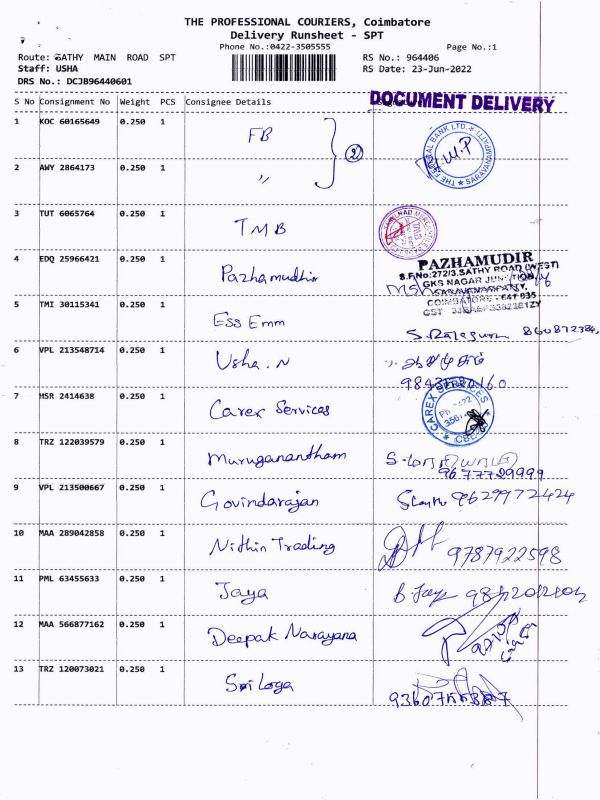 THE PROFESSIONAL COURIERS, Coimbatore
Delivery Runsheet - SPT
Phone No.:0422-3505555 Page No.:1
Route: SATHY MAIN ROAD SPT RS No.: 964406
Staff: USHA RS Date: 23-Jun-2022
DRS No.: DCJB96440601
S No Consignment No Weight PCS Consignee Details
DOCUMENT DELIVERY
1 KOC 60165649 0.250 1 FB 2
THE FEDERAL BANK LTD. SARAVANAMPATTI
2 AWY 2864173 0.250 1 〃
3 TUT 6065764 0.250 1 TMB
4 EDQ 25966421 0.250 1 Pazhamudhir
PAZHAMUDIR
S.F.No:272/3.SATHY ROAD (WEST)
GKS NAGAR JUNCTION,
SARAVANAMPATTY,
COIMBATORE - 641 035
5 TMI 30115341 0.250 1 Ess Emm
6 VPL 213548714 0.250 1 Usha.N
7 HSR 2414638 0.250 1 Carex Services
CAREX SERVICES
8 TRZ 122039579 0.250 1 Muruganantham
9677729999
9 VPL 213500667 0.250 1 Govindarajan 9629972424
10 MAA 289042858 0.250 1 Nithin Trading 9787922598
11 PML 63455633 0.250 1 Jaya
12 MAA 566877162 0.250 1 Deepak Narayana
13 TRZ 120073021 0.250 1 Sri Loga